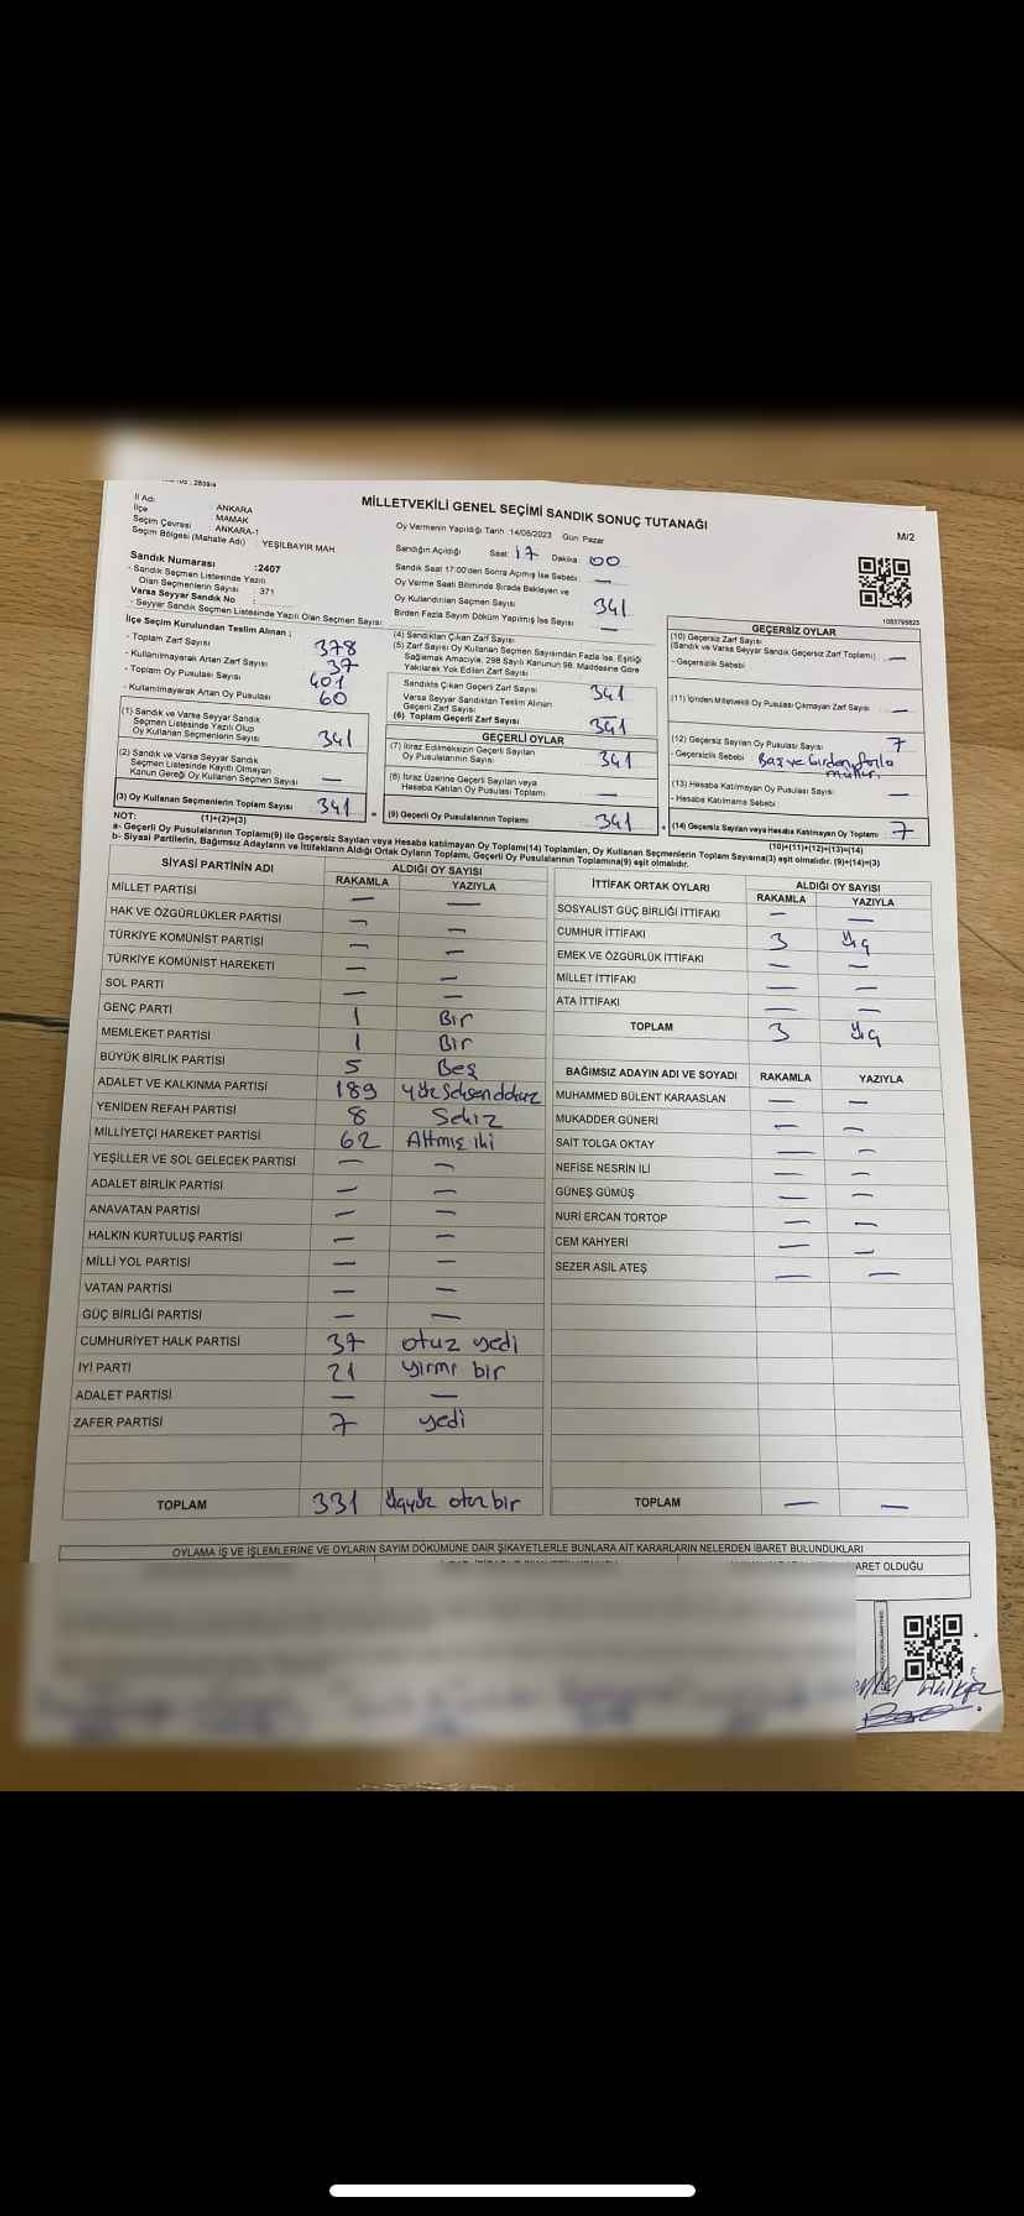 MİLLETVEKİLİ GENEL SEÇİMİ SANDIK SONUÇ TUTANAĞI
M/2
İl Adı : ANKARA
İlçe : MAMAK
Seçim Çevresi : ANKARA-1
Seçim Bölgesi (Mahalle Adı) YEŞİLBAYIR MAH.
Sandık Numarası :2407
- Sandık Seçmen Listesinde Yazılı
Olan Seçmenlerin Sayısı : 371
Varsa Seyyar Sandık No :
- Seyyar Sandık Seçmen Listesinde Yazılı Olan Seçmen Sayısı:
Oy Vermenin Yapıldığı Tarih 14/05/2023 Gün Pazar
Sandığın Açıldığı Saat 17 Dakika 00
Sandık Saat 17:00'den Sonra Açılmış İse Sebebi —
Oy Verme Saati Bitiminde Sırada Bekleyen ve
Oy Kullandırılan Seçmen Sayısı 341
Birden Fazla Sayım Döküm Yapılmış İse Sayısı —
1083795823
İlçe Seçim Kurulundan Teslim Alınan ;
- Toplam Zarf Sayısı 378
- Kullanılmayarak Artan Zarf Sayısı 37
- Toplam Oy Pusulası Sayısı 401
- Kullanılmayarak Artan Oy Pusulası 60
(1) Sandık ve Varsa Seyyar Sandık
Seçmen Listesinde Yazılı Olup
Oy Kullanan Seçmenlerin Sayısı 341
(2) Sandık ve Varsa Seyyar Sandık
Seçmen Listesinde Kayıtlı Olmayan
Kanun Gereği Oy Kullanan Seçmen Sayısı —
(3) Oy Kullanan Seçmenlerin Toplam Sayısı 341
(1)+(2)=(3)
(4) Sandıktan Çıkan Zarf Sayısı
(5) Zarf Sayısı Oy Kullanan Seçmen Sayısından Fazla İse, Eşitliği
Sağlamak Amacıyla, 298 Sayılı Kanunun 98. Maddesine Göre
Yakılarak Yok Edilen Zarf Sayısı
Sandıkta Çıkan Geçerli Zarf Sayısı 341
Varsa Seyyar Sandıktan Teslim Alınan
Geçerli Zarf Sayısı
(6) Toplam Geçerli Zarf Sayısı 341
GEÇERLİ OYLAR
(7) İtiraz Edilmeksizin Geçerli Sayılan
Oy Pusulalarının Sayısı 341
(8) İtiraz Üzerine Geçerli Sayılan veya
Hesaba Katılan Oy Pusulası Toplamı —
(9) Geçerli Oy Pusulalarının Toplamı 341
GEÇERSİZ OYLAR
(10) Geçersiz Zarf Sayısı
(Sandık ve Varsa Seyyar Sandık Geçersiz Zarf Toplamı) —
- Geçersizlik Sebebi
(11) İçinden Milletvekili Oy Pusulası Çıkmayan Zarf Sayısı —
(12) Geçersiz Sayılan Oy Pusulası Sayısı 7
- Geçersizlik Sebebi Boş ve birden fazla
mühür.
(13) Hesaba Katılmayan Oy Pusulası Sayısı —
- Hesaba Katılmama Sebebi
(14) Geçersiz Sayılan veya Hesaba Katılmayan Oy Toplamı 7
(10)+(11)+(12)+(13)=(14)
NOT:
a- Geçerli Oy Pusulalarının Toplamı(9) ile Geçersiz Sayılan veya Hesaba katılmayan Oy Toplamı(14) Toplamları, Oy Kullanan Seçmenlerin Toplam Sayısına(3) eşit olmalıdır. (9)+(14)=(3)
b- Siyasi Partilerin, Bağımsız Adayların ve İttifakların Aldığı Ortak Oyların Toplamı, Geçerli Oy Pusulalarının Toplamına(9) eşit olmalıdır.
SİYASİ PARTİNİN ADI ALDIĞI OY SAYISI
RAKAMLA YAZIYLA
MİLLET PARTİSİ — —
HAK VE ÖZGÜRLÜKLER PARTİSİ — —
TÜRKİYE KOMÜNİST PARTİSİ — —
TÜRKİYE KOMÜNİST HAREKETİ — —
SOL PARTİ — —
GENÇ PARTİ 1 Bir
MEMLEKET PARTİSİ 1 Bir
BÜYÜK BİRLİK PARTİSİ 5 Beş
ADALET VE KALKINMA PARTİSİ 189 yüzseksendokuz
YENİDEN REFAH PARTİSİ 8 Sekiz
MİLLİYETÇİ HAREKET PARTİSİ 62 Altmış iki
YEŞİLLER VE SOL GELECEK PARTİSİ — —
ADALET BİRLİK PARTİSİ — —
ANAVATAN PARTİSİ — —
HALKIN KURTULUŞ PARTİSİ — —
MİLLİ YOL PARTİSİ — —
VATAN PARTİSİ — —
GÜÇ BİRLİĞİ PARTİSİ — —
CUMHURİYET HALK PARTİSİ 37 otuz yedi
İYİ PARTİ 21 yirmi bir
ADALET PARTİSİ — —
ZAFER PARTİSİ 7 yedi
TOPLAM 331 üçyüz otuz bir
İTTİFAK ORTAK OYLARI ALDIĞI OY SAYISI
RAKAMLA YAZIYLA
SOSYALİST GÜÇ BİRLİĞİ İTTİFAKI — —
CUMHUR İTTİFAKI 3 üç
EMEK VE ÖZGÜRLÜK İTTİFAKI — —
MİLLET İTTİFAKI — —
ATA İTTİFAKI — —
TOPLAM 3 üç
BAĞIMSIZ ADAYIN ADI VE SOYADI RAKAMLA YAZIYLA
MUHAMMED BÜLENT KARAASLAN — —
MUKADDER GÜNERİ — —
SAİT TOLGA OKTAY — —
NEFİSE NESRİN İLİ — —
GÜNEŞ GÜMÜŞ — —
NURİ ERCAN TORTOP — —
CEM KAHYERİ — —
SEZER ASİL ATEŞ — —
TOPLAM — —
OYLAMA İŞ VE İŞLEMLERİNE VE OYLARIN SAYIM DÖKÜMÜNE DAİR ŞİKAYETLERLE BUNLARA AİT KARARLARIN NELERDEN İBARET BULUNDUKLARI
ARET OLDUĞU